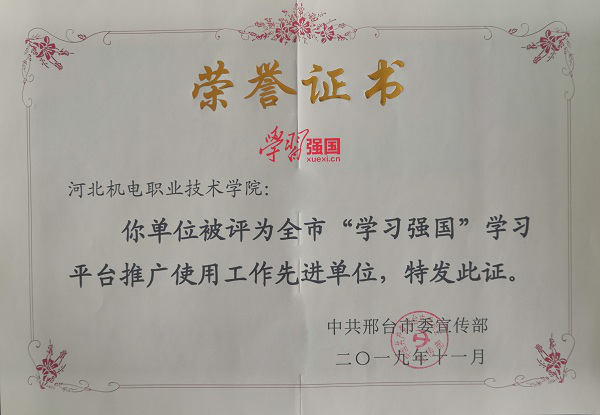 荣誉证书
学习强国
xuexi.cn
河北机电职业技术学院：
你单位被评为全市“学习强国”学习
平台推广使用工作先进单位，特发此证。
中共邢台市委宣传部
二〇一九年十一月